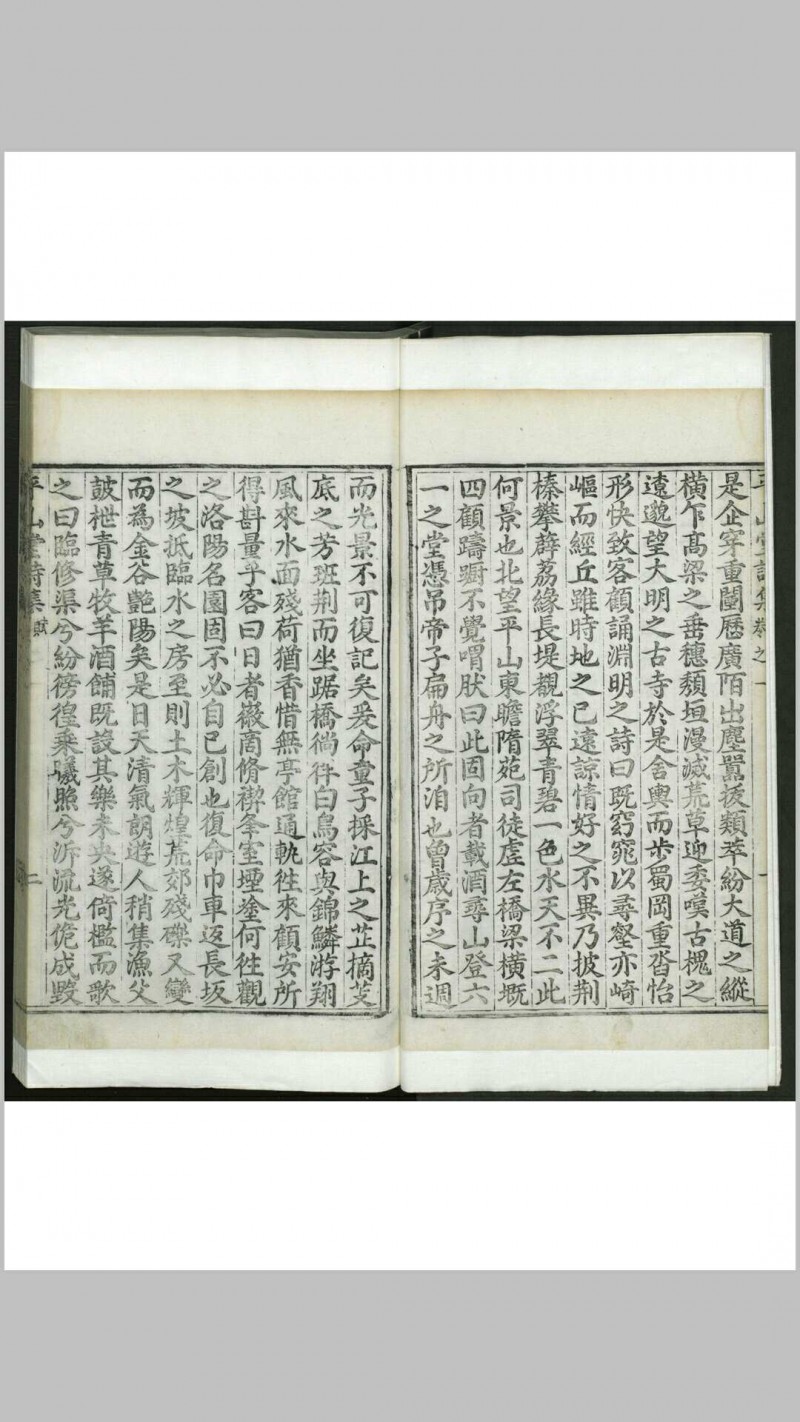 平山堂詩集卷之一
是企穿重闉歷廣陌出塵嚚拔類萃紛大道之縱
橫乍高梁之垂穗頹垣漫滅荒草迎委嘆古槐之
遠邈望大明之古寺於是舍輿而步蜀岡重沓怡
形快致客顧誦淵明之詩曰既窈窕以尋壑亦崎
嶇而經丘雖時地之已遠諒情好之不異乃披荆
榛攀薜荔緣長堤覩浮翠青碧一色水天不二此
何景也北望平山東瞻隋苑司徒虗左橋梁橫概
四顧躊躕不覺喟肰曰此固向者載酒尋山登六
一之堂憑吊帝子扁舟之所洎也曾歲序之未週
而光景不可復記矣爰命童子採江上之芷摘芰
底之芳班荆而坐踞橋徜徉白鳥容與錦鱗游翔
風來水面殘荷猶香惜無亭館通軌徃來顧安所
得斟量乎客曰日者徽商脩稧夆室堙塗何徃觀
之洛陽名園固不必自己創也復命巾車返長坂
之坡抵臨水之房至則土木輝煌荒郊殘礫又變
而為金谷艷陽矣是日天清氣朗遊人稍集漁父
鼓枻青草牧羊酒餔既設其樂未央遂倚檻而歌
之曰臨修渠兮紛徬徨乘曦照兮泝流光俛成毀
平山堂詩集 賦 二